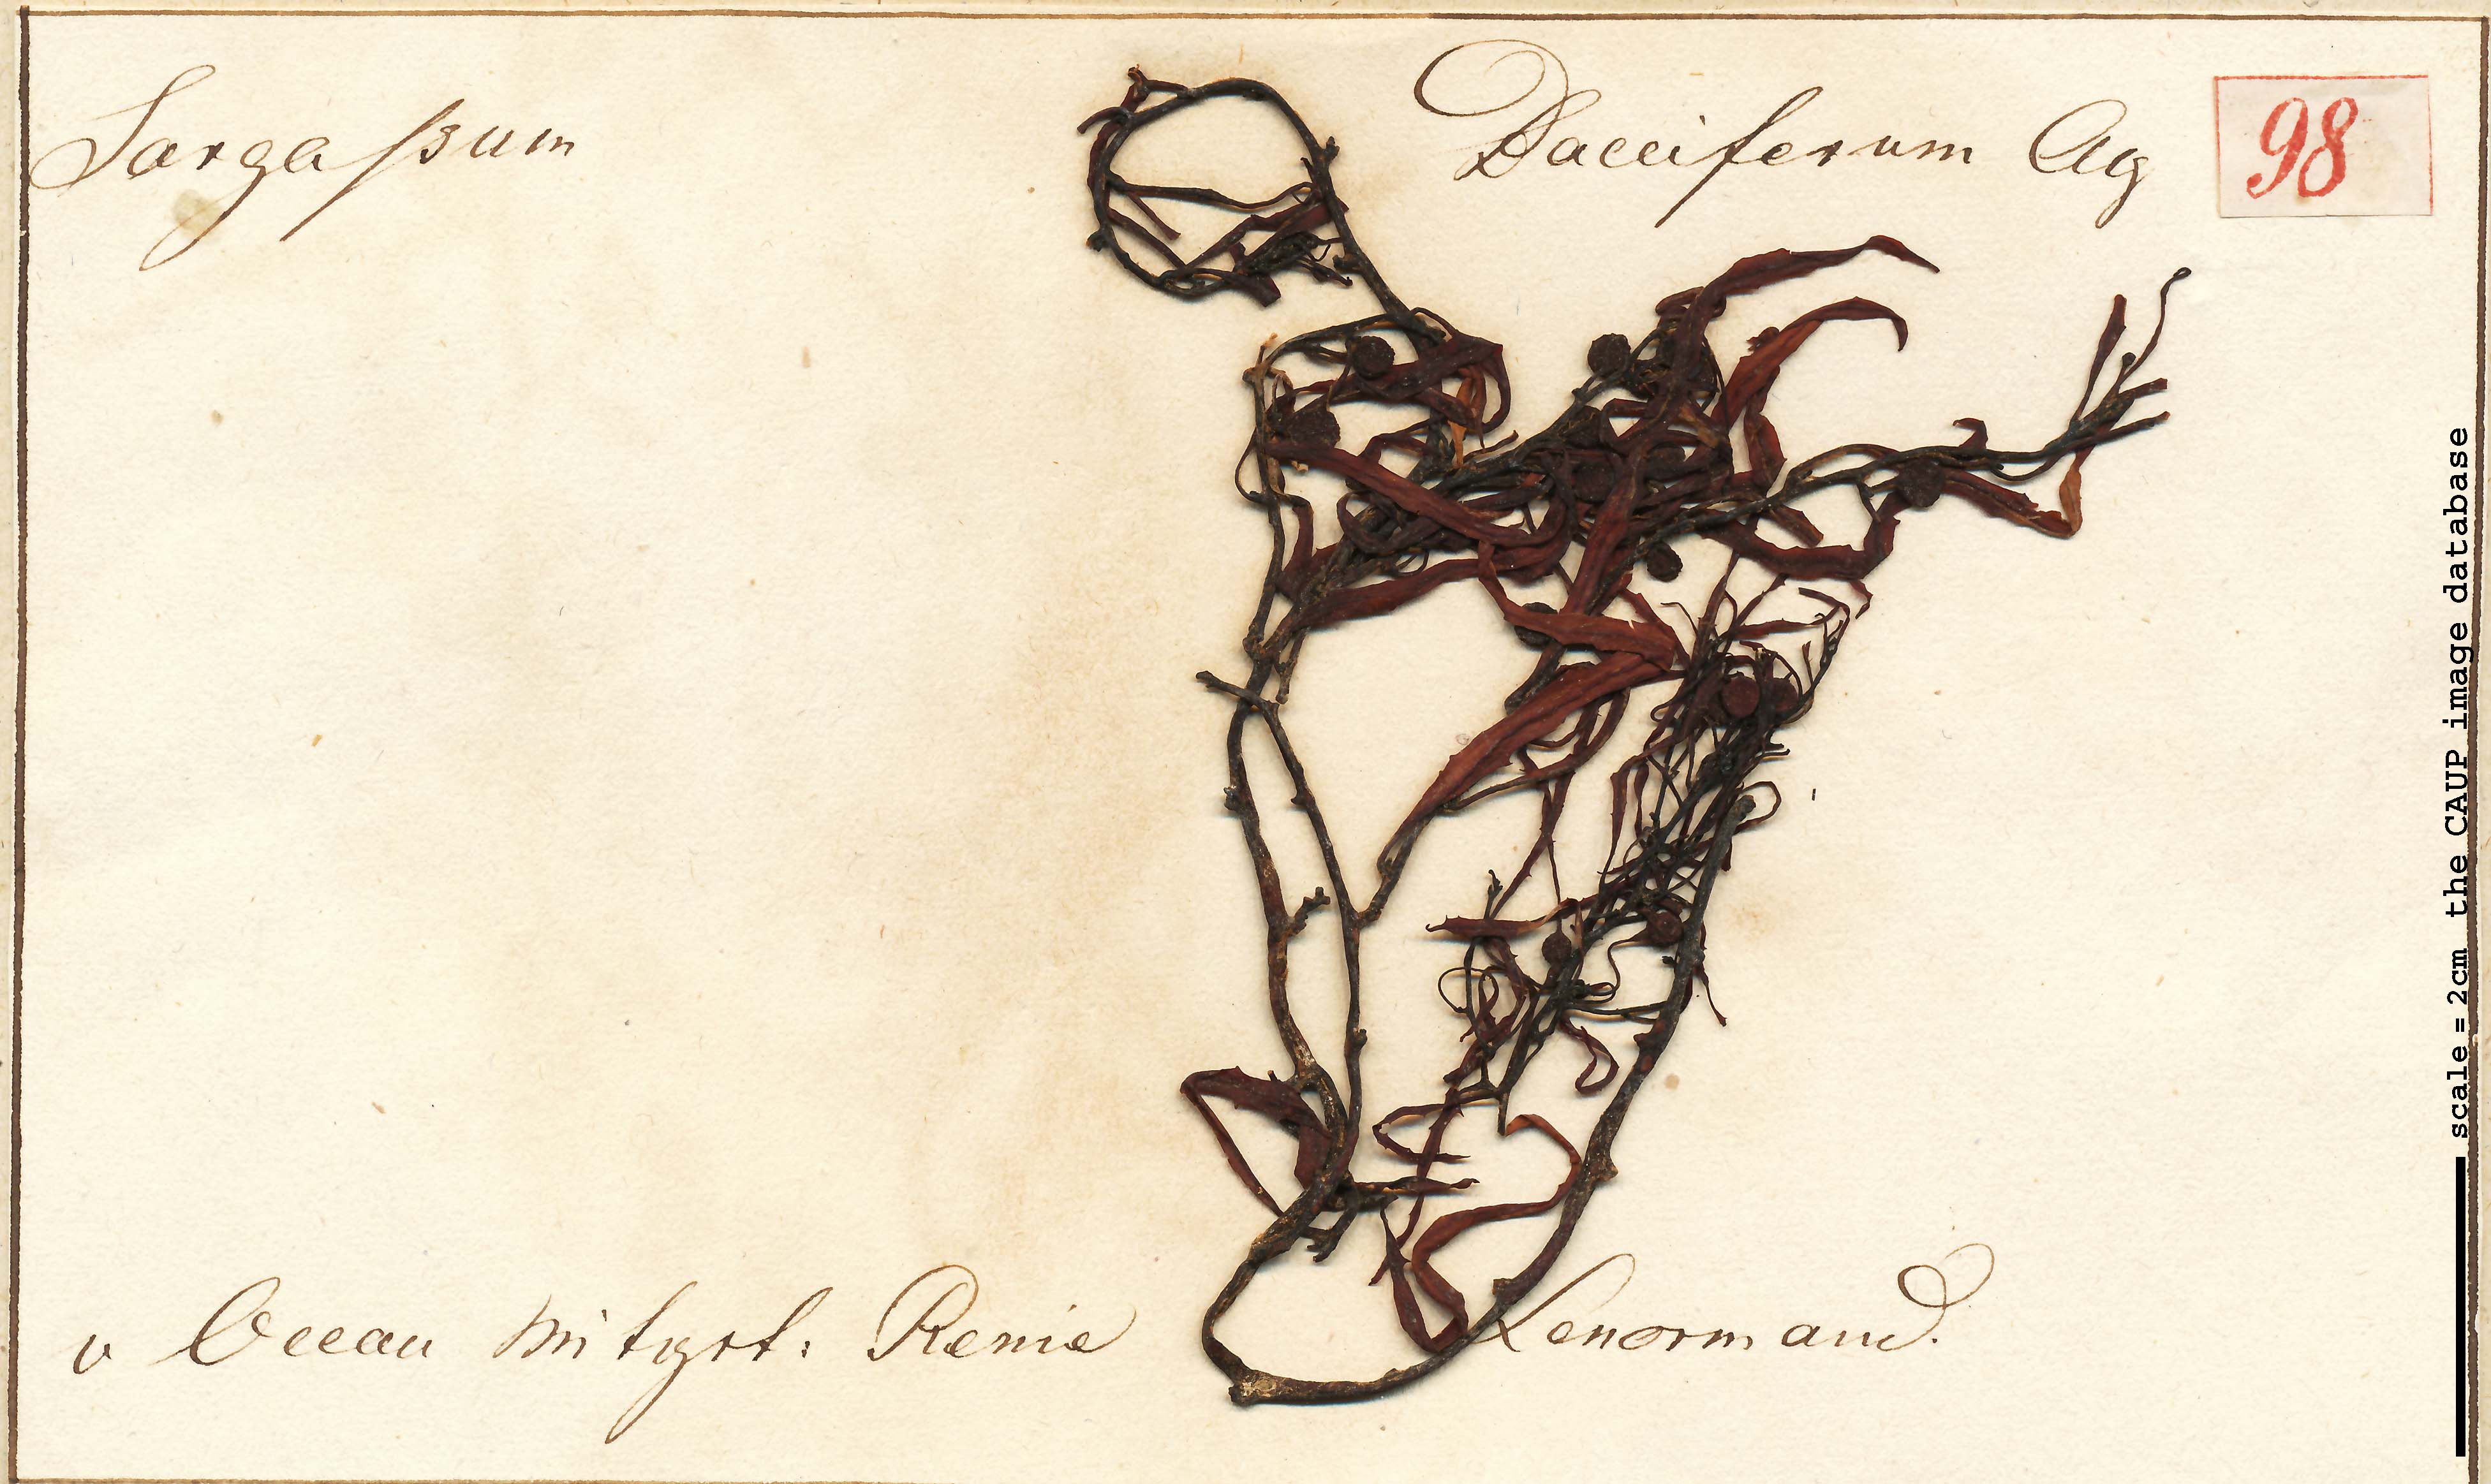 Sargassum Bacciferum Ag
98
v Ocean Lenormand.
scale = 2cm the CAUP image database